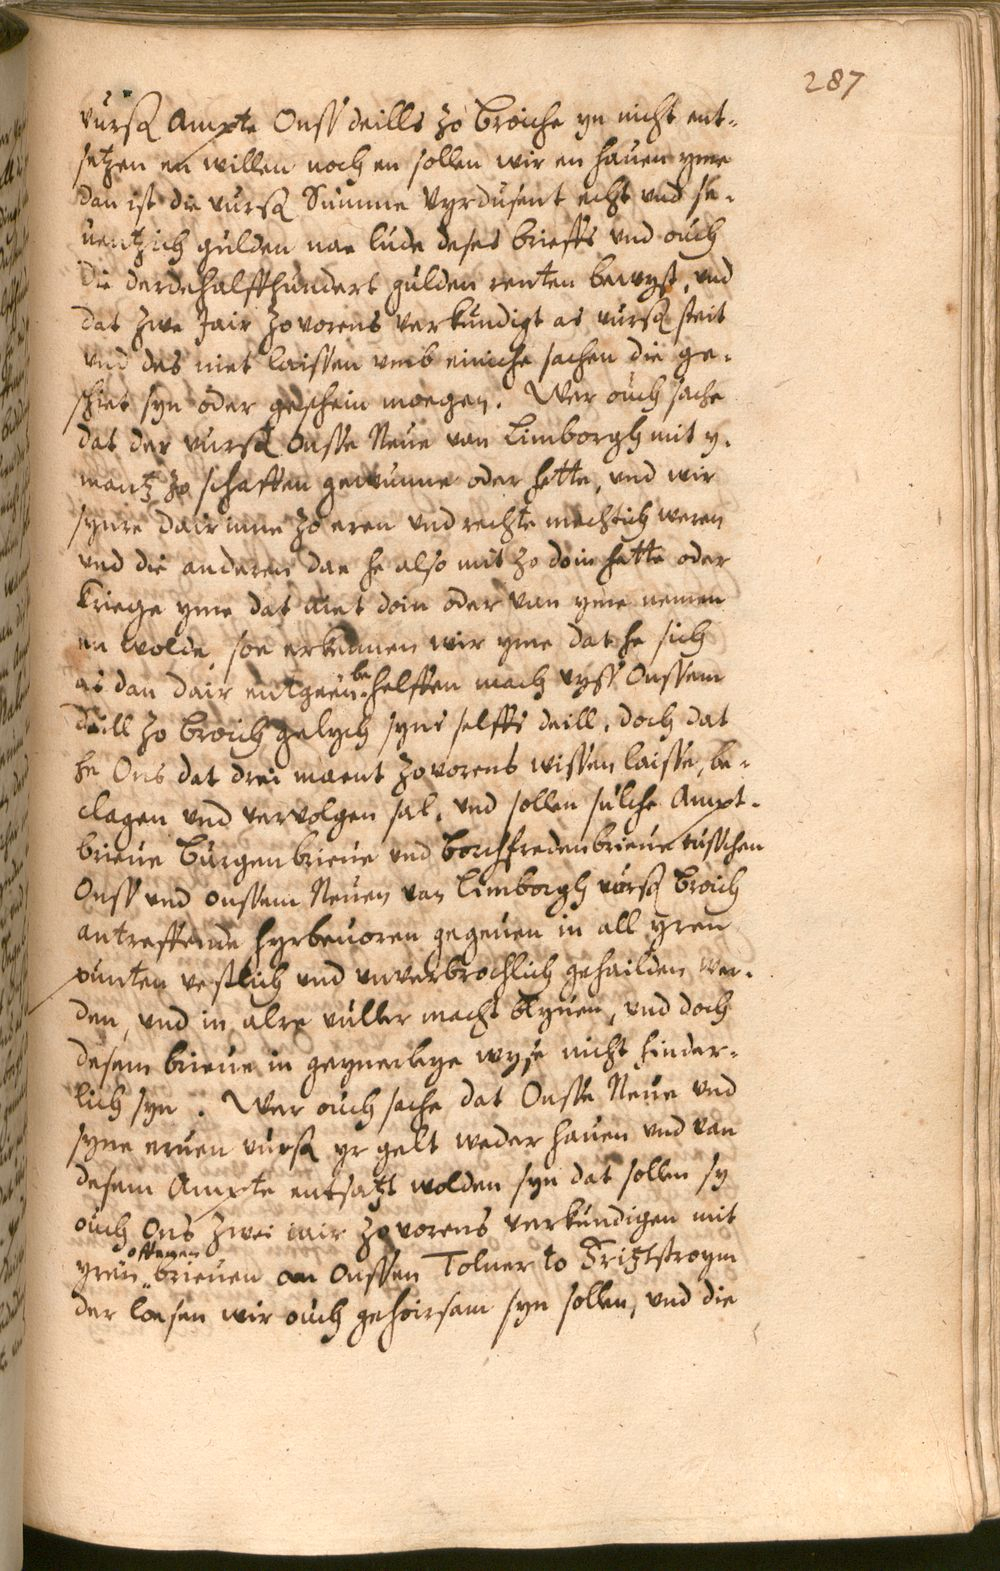 287
vurß Ampte Onss deills zo Broiche yn nicht ent-
setzen en willen noch en sollen wir en hauen yme
dan ist die vurß Summe Vyrdusent echt vnd se-
uentzich gulden nae lude deses brieffs vnd ouch
die derdehalffhundert gulden renten bewyst, vnd
dat zwe Jair zovorens verkundigt as vurß steit
vnd des niet laissen vmb einiche sachen die ge-
schiet syn oder geschein moegen. Wer ouch sache
dat der vurß Onsse Neue van Limborgh mit y-
mantz zo schaffen gewunne oder hette, vnd wir
synre dair inne zo eren vnd rechte mechtich weren
vnd die anderen dae he also mit zo doin hette oder
kriege yme dat niet doin oder van yme nemen
en wolde, soe erkennen wir yme dat he sich
as dan dair entgeen behelffen mach vyss Onssem
deill zo Broich gelych syns selffs deill, doch dat
he Ons dat drei maent zovorens wissen laisse, be-
clagen vnd vervolgen sal, vnd sollen sulche Ampt-
brieue Burgenbrieue vnd Borchfredenbrieue tusschen
Onss vnd onssem Neuen van Limborgh vurß Broich
antreffende hyrbeuoren gegeuen in all yren
punten vestlich vnd vnverbrochlich gehailden wer-
den, vnd in alre vuller macht blyuen, vnd doch
desem brieue in geynerleye wyse nicht hinder-
lich syn. Wer ouch sache dat Onsse Neue vnd
syne eruen vurß yr gelt weder hauen vnd van
desem Ampte entsatzt wolden syn dat sollen sy
ouch Ons zwei iair zovorens verkundigen mit
yren offenen brieuen an Onssen Tolner to Fritzstroym
der loesen wir ouch gehoirsam syn sollen, vnd die